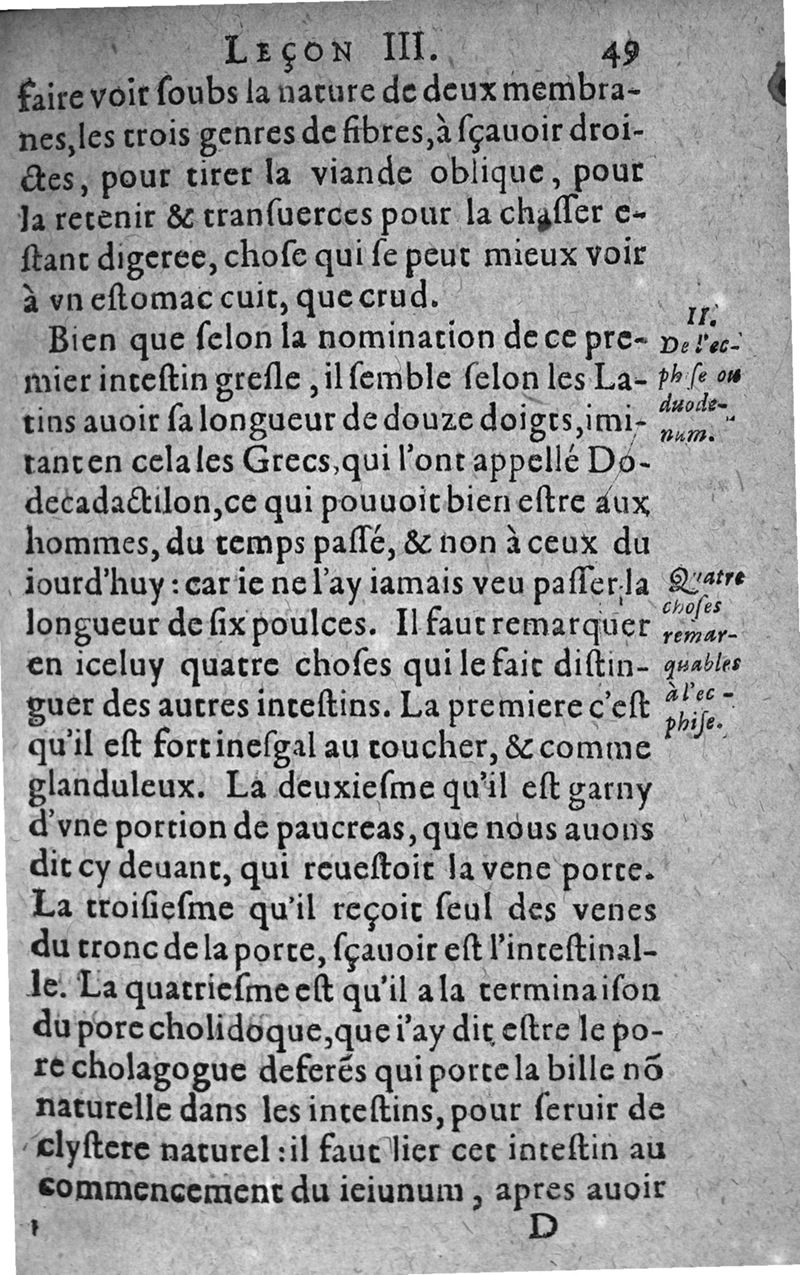 LEÇON III. 49
faire voir ſoubs la nature de deux membra-
nes, les trois genres de fibres, à ſçauoir droi-
ctes, pour tirer la viande oblique, pour
la retenir & tranſuerces pour la chaſſer e-
ſtant digeree, choſe qui ſe peut mieux voir
à vn eſtomac cuit, que crud.
Bien que ſelon la nomination de ce pre-
mier inteſtin greſle, il ſemble ſelon les La-
tins auoir ſa longueur de douze doigts, imi-
tant en cela les Grecs, qui l'ont appellé Do-
decadactilon, ce qui pouuoit bien eſtre aux
hommes, du temps paſſé, & non à ceux du
iourd'huy : car ie ne l'ay iamais veu paſſer la
longueur de ſix poulces. Il faut remarquer
en iceluy quatre choſes qui le fait diſtin-
guer des autres inteſtins. La premiere c'eſt
qu'il eſt fort ineſgal au toucher, & comme
glanduleux. La deuxieſme qu'il eſt garny
d'vne portion de paucreas, que nous auons
dit cy deuant, qui reueſtoit la vene porte.
La troiſieſme qu'il reçoit ſeul des venes
du tronc de la porte, ſçauoir eſt l'inteſtinal-
le. La quatrieſme eſt qu'il a la terminaiſon
du pore cholidoque, que i'ay dit eſtre le po-
re cholagogue deferés qui porte la bille nõ
naturelle dans les inteſtins, pour ſeruir de
clyſtere naturel : il faut lier cet inteſtin au
commencement du ieiunum, apres auoir
D
II.
De l'ec-
phiſe ou
duode-
num.
Quatre
choſes
remar-
quables
à l'ec-
phiſe.